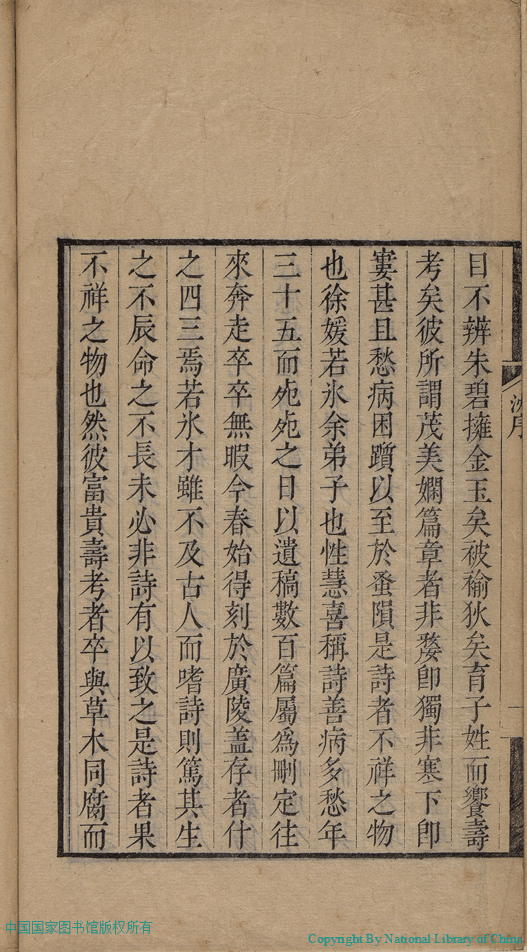 目不辨朱碧擁金玉矣被褕狄矣育子姓而饗壽
考矣彼所謂茂美嫻篇章者非嫠卽獨非寒下卽
寠甚且愁病困躓以至於蚤隕是詩者不祥之物
也徐媛若氷余弟子也性慧喜稱詩善病多愁年
三十五而夗夗之日以遺稿數百篇屬爲刪定往
來奔走卒卒無暇今春始得刻於廣陵盖存者什
之四三焉若氷才雖不及古人而嗜詩則篤其生
之不辰命之不長未必非詩有以致之是詩者果
不祥之物也然彼富貴壽考者卒與草木同腐而
序
一
中国国家图书馆版权所有
Copyright By National Library of China